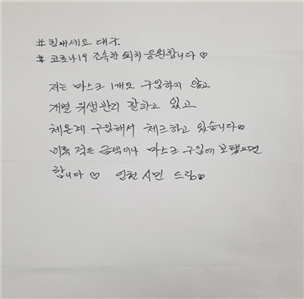 # 힘내세요 대구.
# 코로나19 조속한 퇴치 응원합니다 ♡
저는 마스크 1개도 구입하지 않고
개인 위생관리 잘하고 있고
체온계 구입해서 체크하고 있습니다
비록 적은 금액이나 마스크 구입에 보탰으면
합니다 ♡ 인천 시민 드림